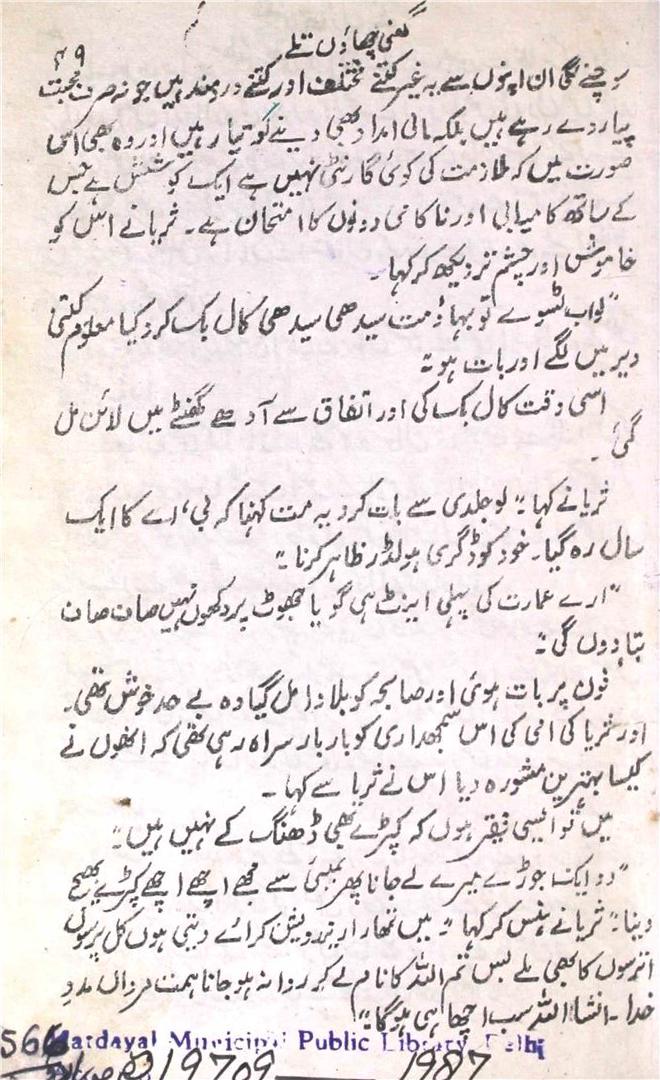 گھنی چھاؤں تلے
۴۹
سوچنے لگی ان اپنوں سے یہ غیر کتنے مختلف اور کتنے درد مند ہیں جو نہ صرف محبت
پیار دے رہے ہیں بلکہ مالی امداد بھی دینے کو تیار ہیں اور وہ بھی اسی
صورت میں کہ ملازمت کی کوئی گارنٹی نہیں ہے ایک کوشش ہے جس
کے ساتھ کامیابی اور ناکامی دونوں کا امتحان ہے۔ ثریا نے اس کو
خاموش اور چشم تر دیکھ کر کہا۔
"لو اب ٹسوے تو بہاؤ مت سیدھی سیدھی کال بک کرو کیا معلوم کتنی
دیر میں لگے اور بات ہو"
اسی وقت کال بک کی اور اتفاق سے آدھے گھنٹے میں لائن مل
گئی۔
ثریا نے کہا "لو جلدی سے بات کرو یہ مت کہنا کہ بی، اے کا ایک
سال رہ گیا۔ خود کو ڈگری ہولڈر ظاہر کرنا"
"ارے عمارت کی پہلی اینٹ ہی گویا جھوٹ پر رکھوں نہیں صاف صاف
بتا دوں گی"
فون پر بات ہوئی اور صابحہ کو بلاوا مل گیا وہ بے حد خوش تھی۔
اور ثریا کی امی کی اس سمجھداری کو بار بار سراہ رہی تھی کہ انھوں نے
کیسا بہترین مشورہ دیا اس نے ثریا سے کہا۔
میں تو ایسی فقیر ہوں کہ کپڑے بھی ڈھنگ کے نہیں ہیں"
"دو ایک جوڑے میرے لے جانا پھر بمبئی سے مجھے اچھے اچھے کپڑے بھیج
دینا" ثریا نے ہنس کر کہا "میں تمھارا ریزرویشن کرائے دیتی ہوں کل پرسوں
اترسوں کا بھی ملے بس تم اللہ کا نام لے کر روانہ ہو جانا ہمت مرداں مدد
خدا۔ انشا اللہ سب اچھا ہی ہوگا"
Hardayal Municipal Public Library, Delhi
566
19709
1987